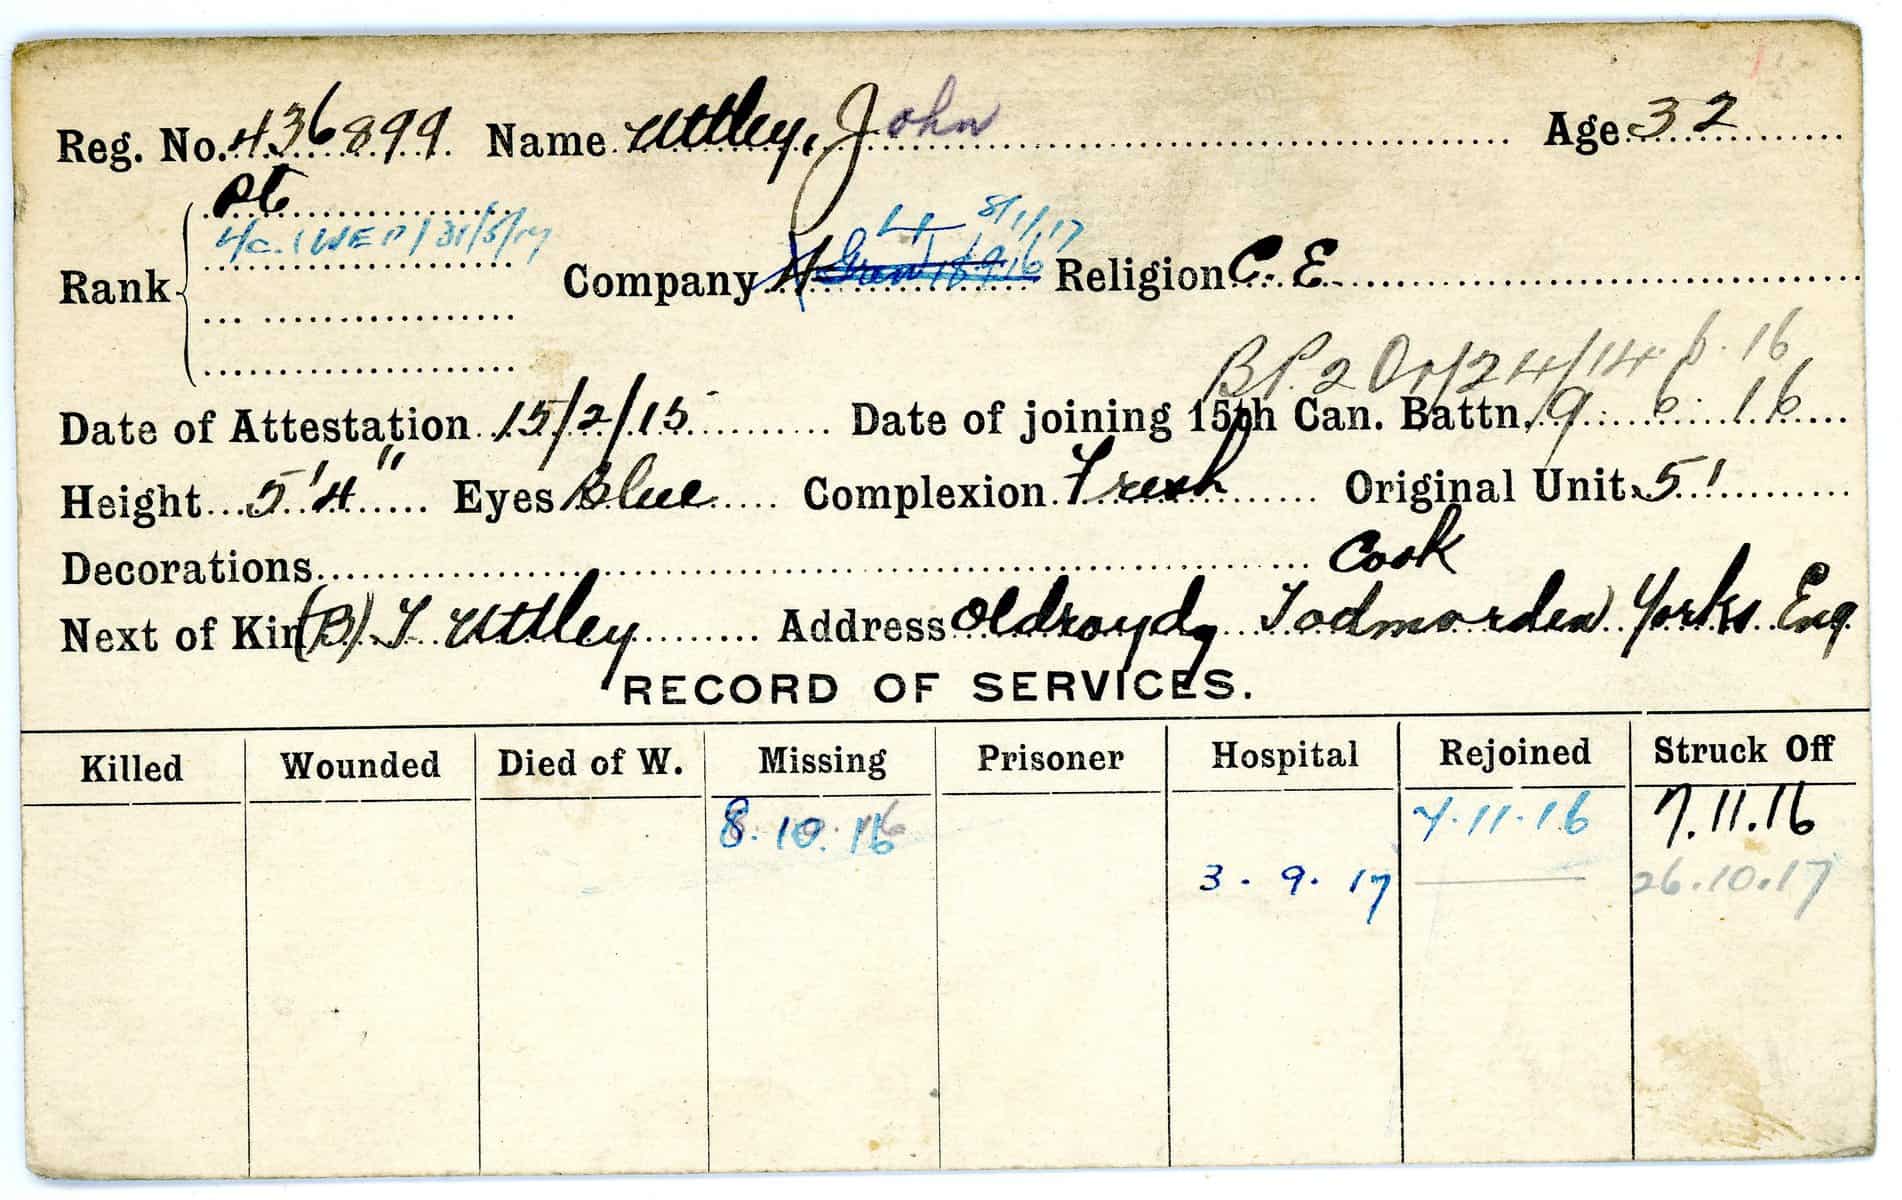 Reg. No. 436899 Name Uttley, John Age 32
Rank Pte
4/c. (WEF) 31/5/17
4 8/1/17
Company 4 Gren 18.9.16 Religion C. E.
B.P. 2 Or/24/14.6.16
Date of Attestation 15/2/15 Date of joining 15th Can. Battn. 9. 6. 16
Height 5'4" Eyes Blue Complexion Fresh Original Unit 51
Decorations Cook
Next of Kin (B) T Uttley Address Oldroyd, Todmorden Yorks Eng
RECORD OF SERVICES.
Killed Wounded Died of W. Missing Prisoner Hospital Rejoined Struck Off
8.10.16 7.11.16 7.11.16
3.9.17 26.10.17